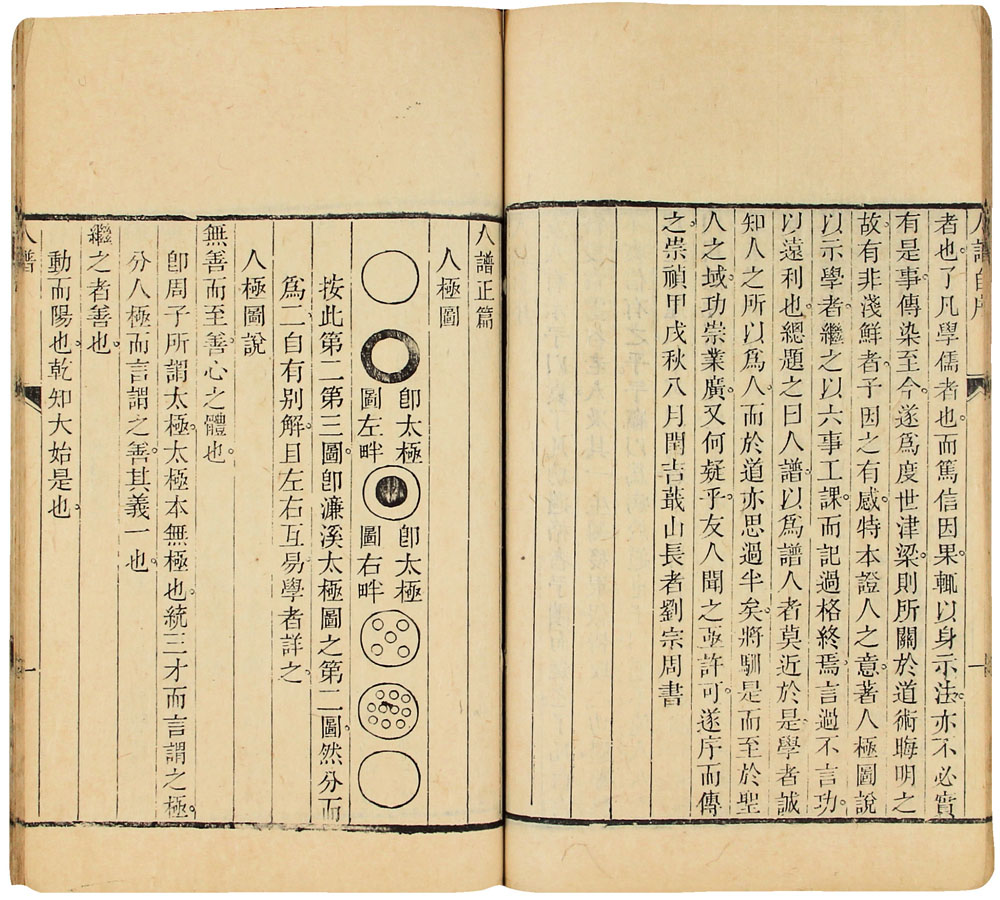 人譜自序
者也。了凡學儒者也。而篤信因果。輒以身示法。亦不必實
有是事。傳染至今。遂爲度世津梁。則所關於道術晦明之
故。有非淺鮮者。予因之有感。特本證人之意。著人極圖說
以示學者。繼之以六事工課。而記過格終焉。言過不言功。
以遠利也。總題之曰人譜。以爲譜人者莫近於是。學者誠
知人之所以爲人。而於道亦思過半矣。將馴是而至於聖
人之域。功崇業廣。又何疑乎。友人聞之亟許可。遂序而傳
之。崇禎甲戌秋八月閏吉蕺山長者劉宗周書
一
人譜正篇
人極圖
卽太極
圖左畔
卽太極
圖右畔
按此第二第三圖。卽濂溪太極圖之第二圖。然分而
爲二。自有別解。且左右互易。學者詳之。
人極圖說
無善而至善。心之體也。
卽周子所謂太極。太極本無極也。統三才而言謂之極。
分人極而言謂之善。其義一也。
繼之者善也。
動而陽也。乾知大始是也。
人譜
一